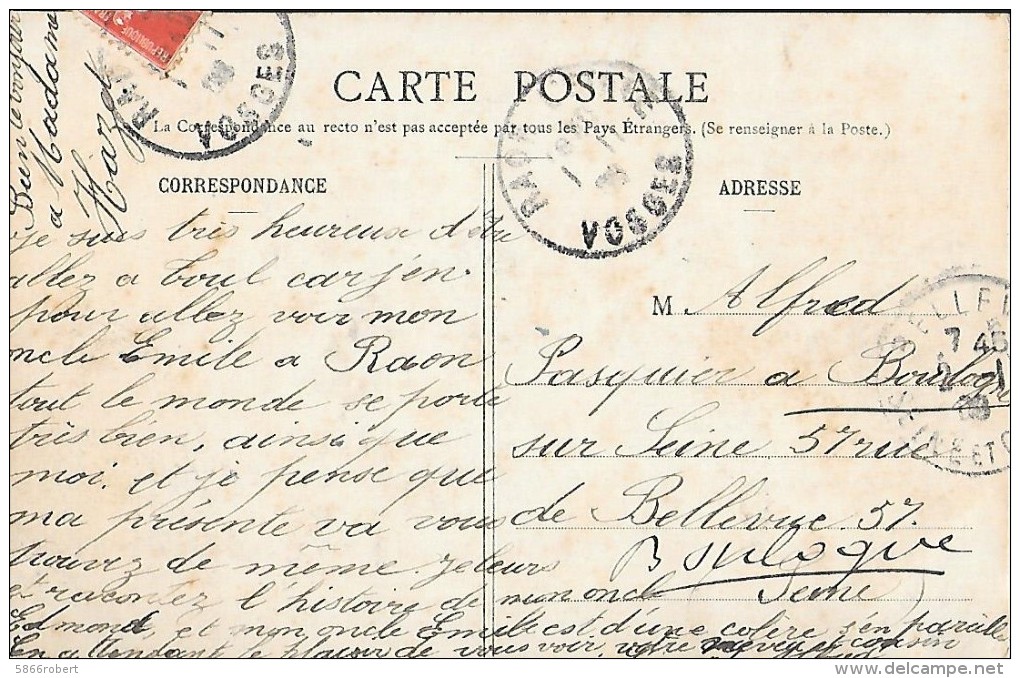 Bien le bonjour
a Madame
Hazard
RAON
VOSGES
RAON
VOSGES
CARTE POSTALE
La Correspondance au recto n'est pas acceptée par tous les Pays Étrangers. (Se renseigner à la Poste.)
CORRESPONDANCE
je suis très heureuse d'
allez a Toul car j'en
pour allez voir mon
oncle Emile a Raon
tout le monde se porte
très bien, ainsi que
moi. et je pense que
ma présente va vous
trouvez de même. Je leurs
et racontez l'histoire de mon oncle
Edmond, et mon oncle Emile est d'une colère, s'en pareille
En attendant le plaisir de vous voir, votre cousin
ADRESSE
M Alfred
Pasquier a Boulogne
sur Seine 57 rue
de Bellevue. 57.
Boulogne
Seine
7 45
5866robert